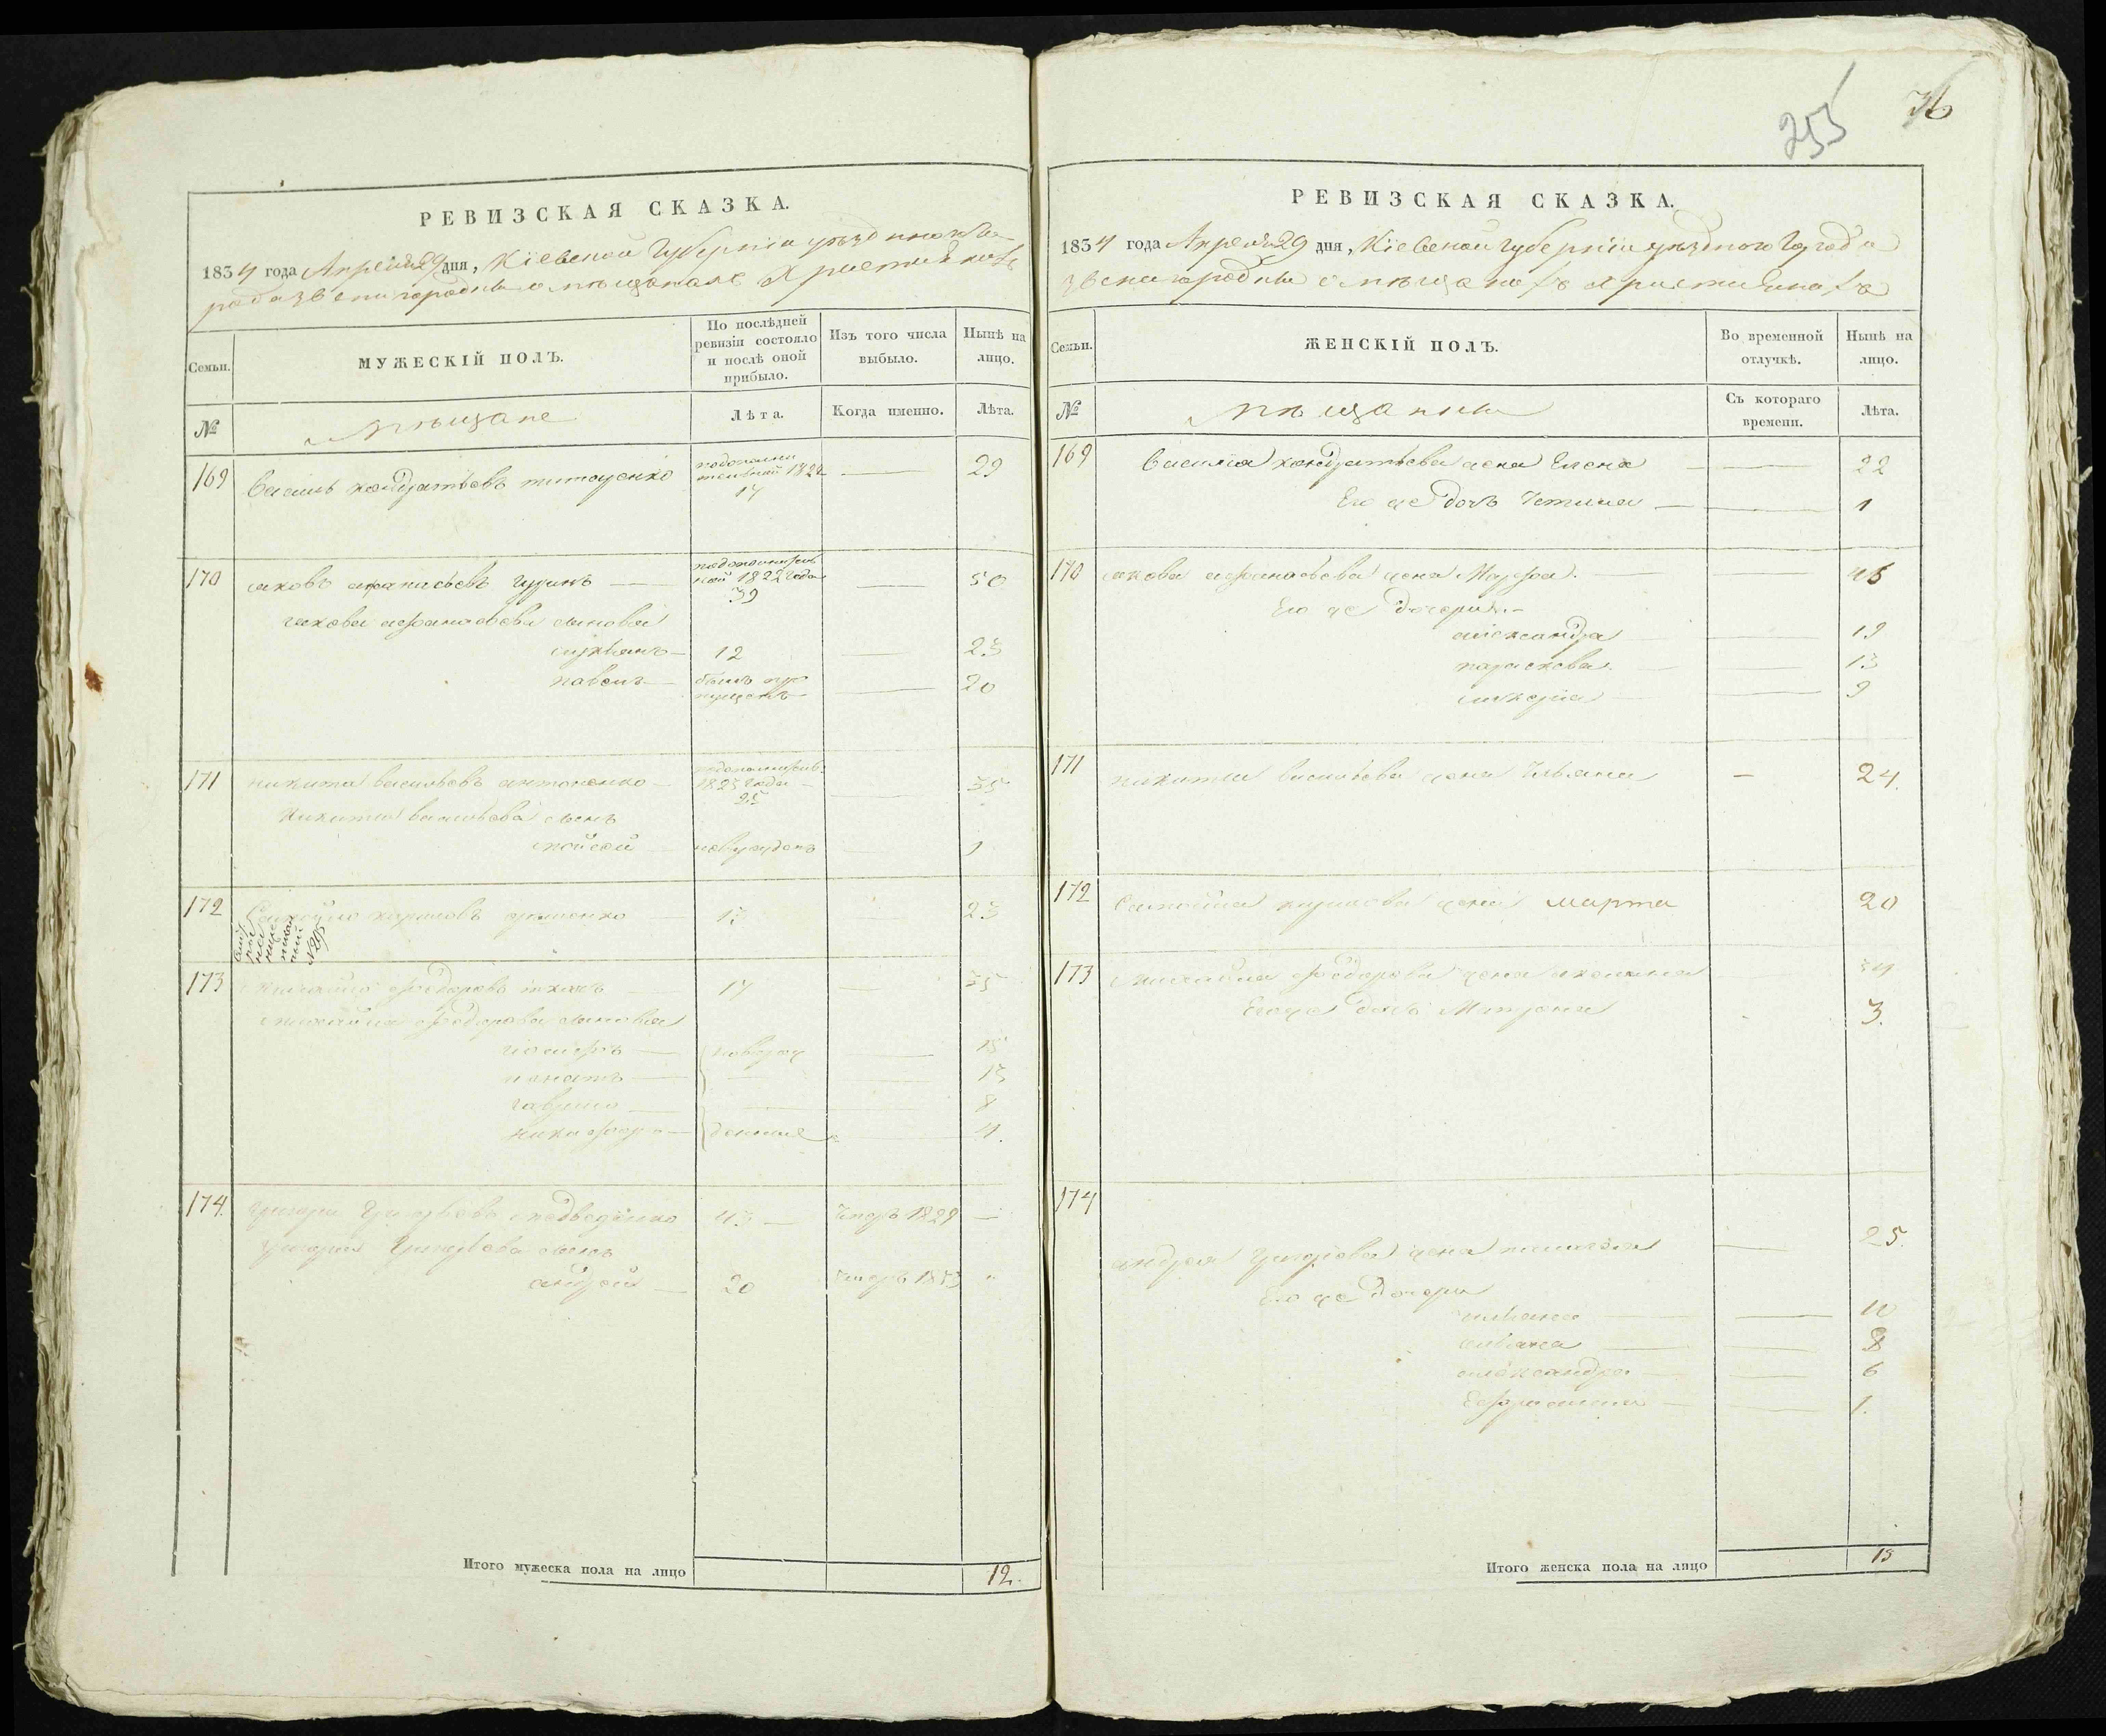 РЕВИЗСКАЯ СКАЗКА.
1834 года Апреля 29 дня, Кіевской Губерніи уезднаго го
рода звенигородки о мѣщанахъ Христіянахъ
Семьи. МУЖЕСКІЙ ПОЛЪ. По послѣдней ревизіи состояло и послѣ оной прибыло. Изъ того числа выбыло. Нынѣ на лицо.
№ мѣщане Лѣта. Когда именно. Лѣта.
169 Василь кондратьевъ титоренко 1822 17 — 29
170 яковъ афанасьевъ Гуринъ — 1822 года 39 — 50
якова афанасьева сыновья
лукьянъ — 12 — 23
павелъ — былъ пропущенъ — 20
171 никита васильевъ антоненко — 1823 года 25 — 35
Никиты васильева сынъ
мойсей новорожденъ 1
172 Самойло кириловъ 13 23
№ 205
173 михайло феодоровъ ткачъ 17 — 35
михайла феодорова сыновья
іосифъ — новорож — 15
игнатъ — — 13
гаврило — — 8
никифоръ — денные — 4.
174. Григорій Григорьевъ медведенко 43 — Умеръ 1829 —
Григорія Григорьева сынъ
андрей — 20 Умеръ 1833 "
Итого мужеска пола на лицо 12.
255 36
РЕВИЗСКАЯ СКАЗКА.
1834 года Апреля 29 дня, Кіевской губерніи уездного Города
звенигородки о мѣщанахъ христіянахъ
Семьи. ЖЕНСКІЙ ПОЛЪ. Во временной отлучкѣ. Нынѣ на лицо.
№ мѣщанки Съ котораго времени. Лѣта.
169 Василія кондратьева жена Елена — 22
Его же дочь Устина — 1
170 якова афанасьева жена Марфа. — 45
Его же дочери. —
александра — 19
параскева. — 13
лукерія — 9
171 никиты васильева жена Ульяна — 24.
172 Самойла кирилова жена марта 20
173 Михайла феодорова жена акилина 34
Егоже дочь Матрона 3.
174
андрея Григорьева жена — 25.
Его же дочери
ульяна — 10
— 8
александра — 6
Ефросинія — 1.
Итого женска пола на лицо 15